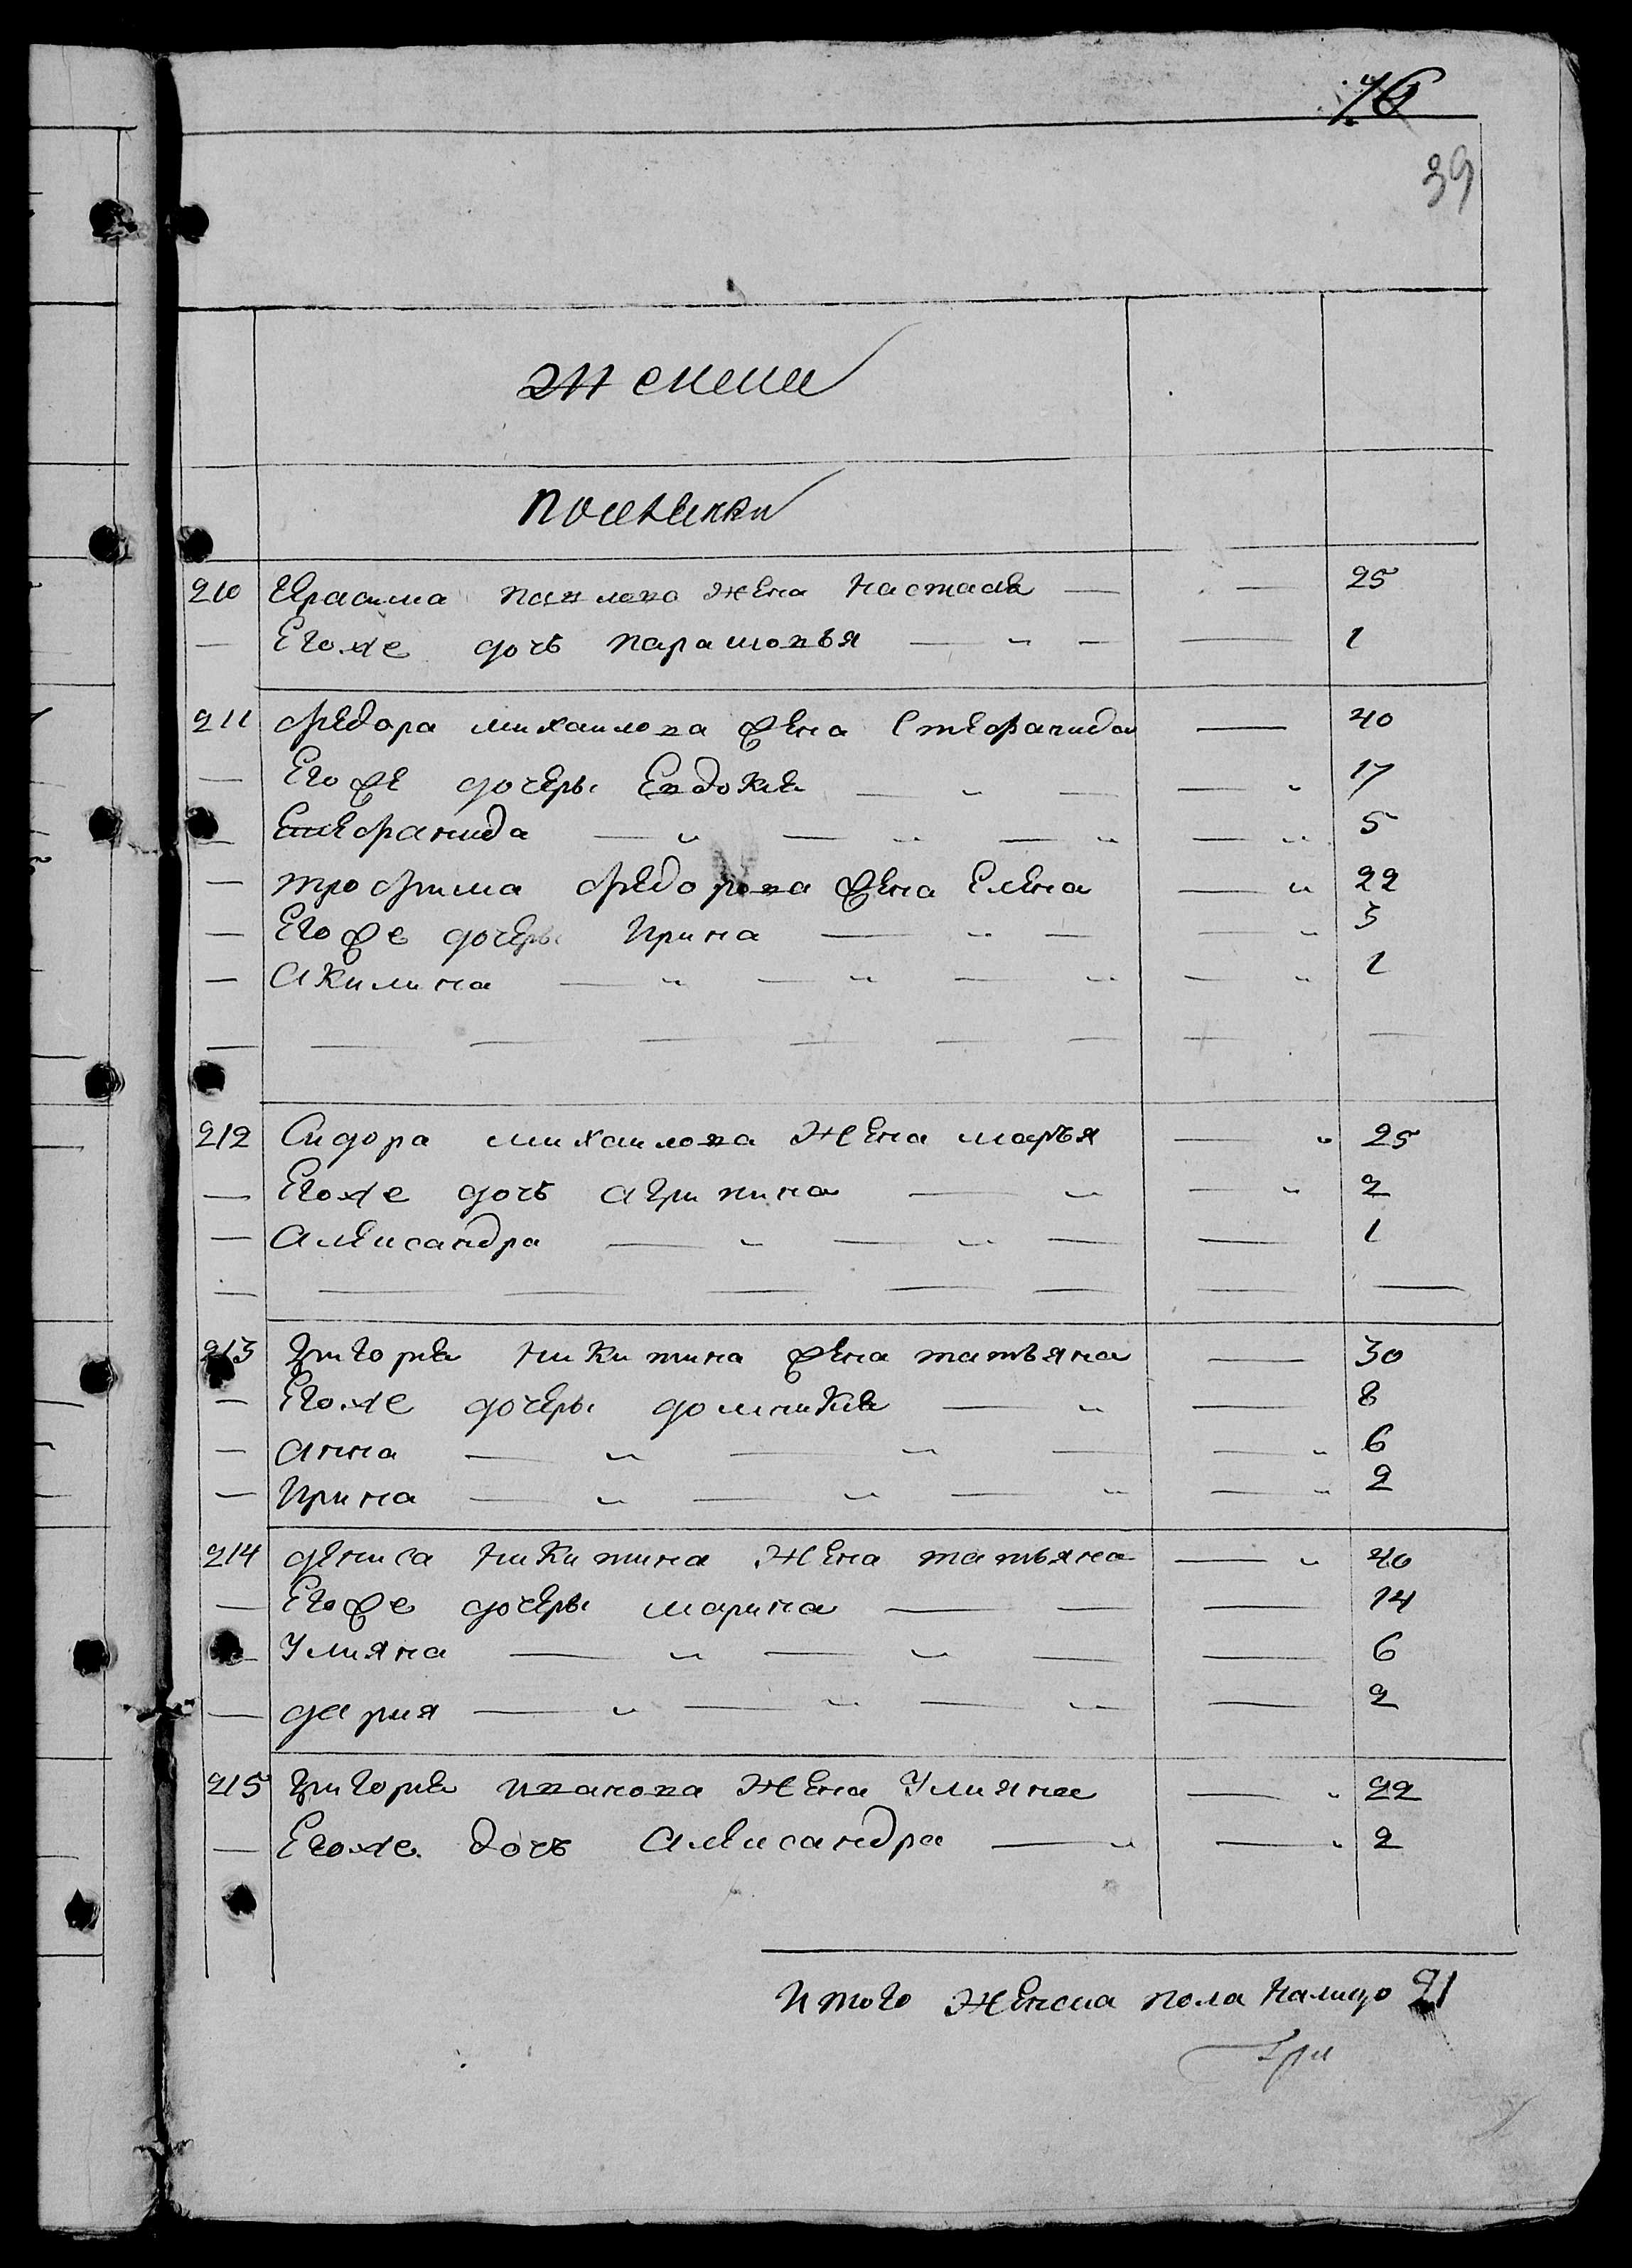 76
39
женск
помещики
210 Герасима павлова жена настася — — 25
— Егоже дочь парасковья — „ — — 1
211 Федора михаилова жена Стефанида — 40
— Егоже дочерь Евдокия — „ — — „ 17
— Стефанида — „ — „ — „ — „ 5
— трофима федорова жена Елена — „ 22
— Егоже дочерь Ирина — „ — — „ 3
— Акилина — „ — „ — „ — „ 1
— — — — — — — — —
212 Сидора михаилова жена марья — „ 25
— Егоже дочь агрипина — „ — „ 2
— Александра — „ — „ — — 1
— — — — — — — — —
213 григория никитина жена татьяна — 30
— Егоже дочерь домникия — „ — 8
— анна — „ — „ — — „ 6
— Ирина — „ — „ — „ — „ 2
214 дениса никитина жена татьяна — „ 40
— Егоже дочерь марина — — — 14
— Улияна — „ — „ — — 6
— дария — „ — „ — „ — 2
215 григория иванова жена Улияна — „ 22
— Егоже дочь Александра — „ — „ 2
Итого женска пола налицо 21